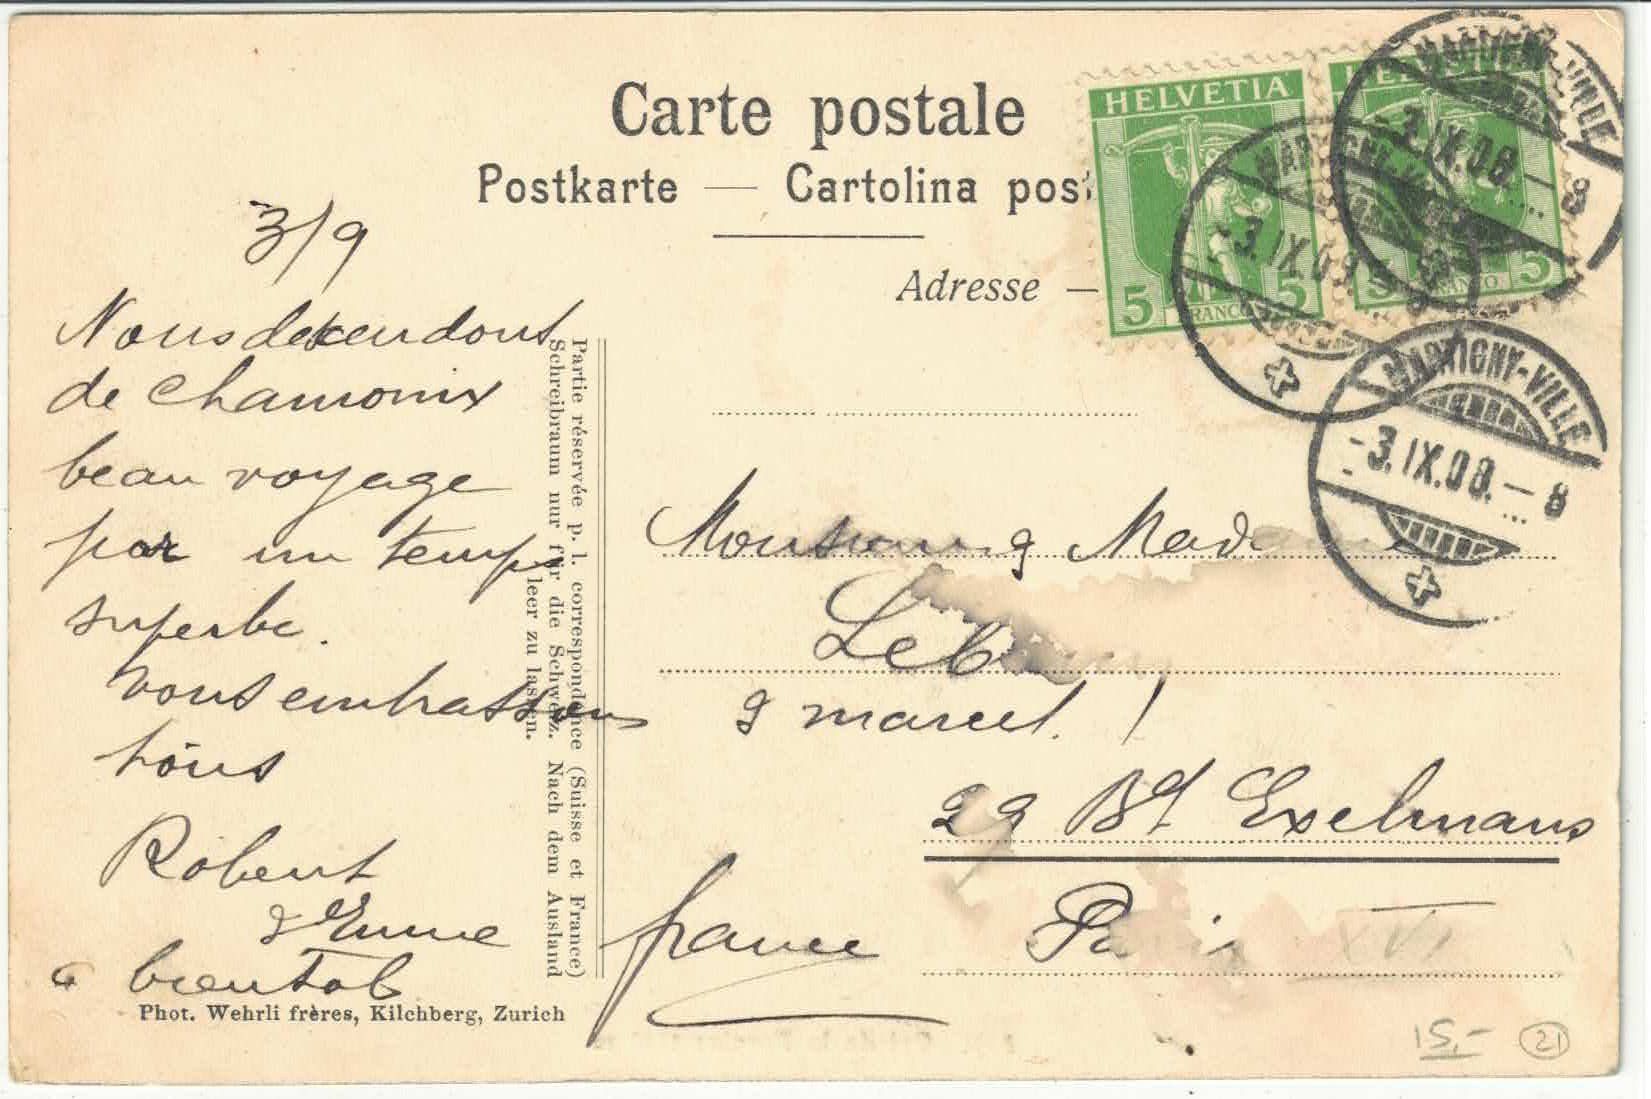 Carte postale
Postkarte — Cartolina post
Adresse —
HELVETIA
5 FRANCO 5
HELVETIA
5 FRANCO 5
MARTIGNY-VILLE
-3.IX.08.-8
-3.IX.08.
MARTIGNY-VILLE
-3.IX.08.-8
3/9
Nous descendons
de Chamonix
beau voyage
par un temps
superbe.
Vous embrassons
tous
Robert
&
a bientot
Partie réservée p. l. correspondence (Suisse et France)
Schreibraum nur für die Schweiz. Nach dem Ausland
leer zu lassen.
Phot. Wehrli frères, Kilchberg, Zurich
Monsieur & Madame
Leb
& Marcel.
29 Bd Exelmans
Paris XVI
france
15.-
21